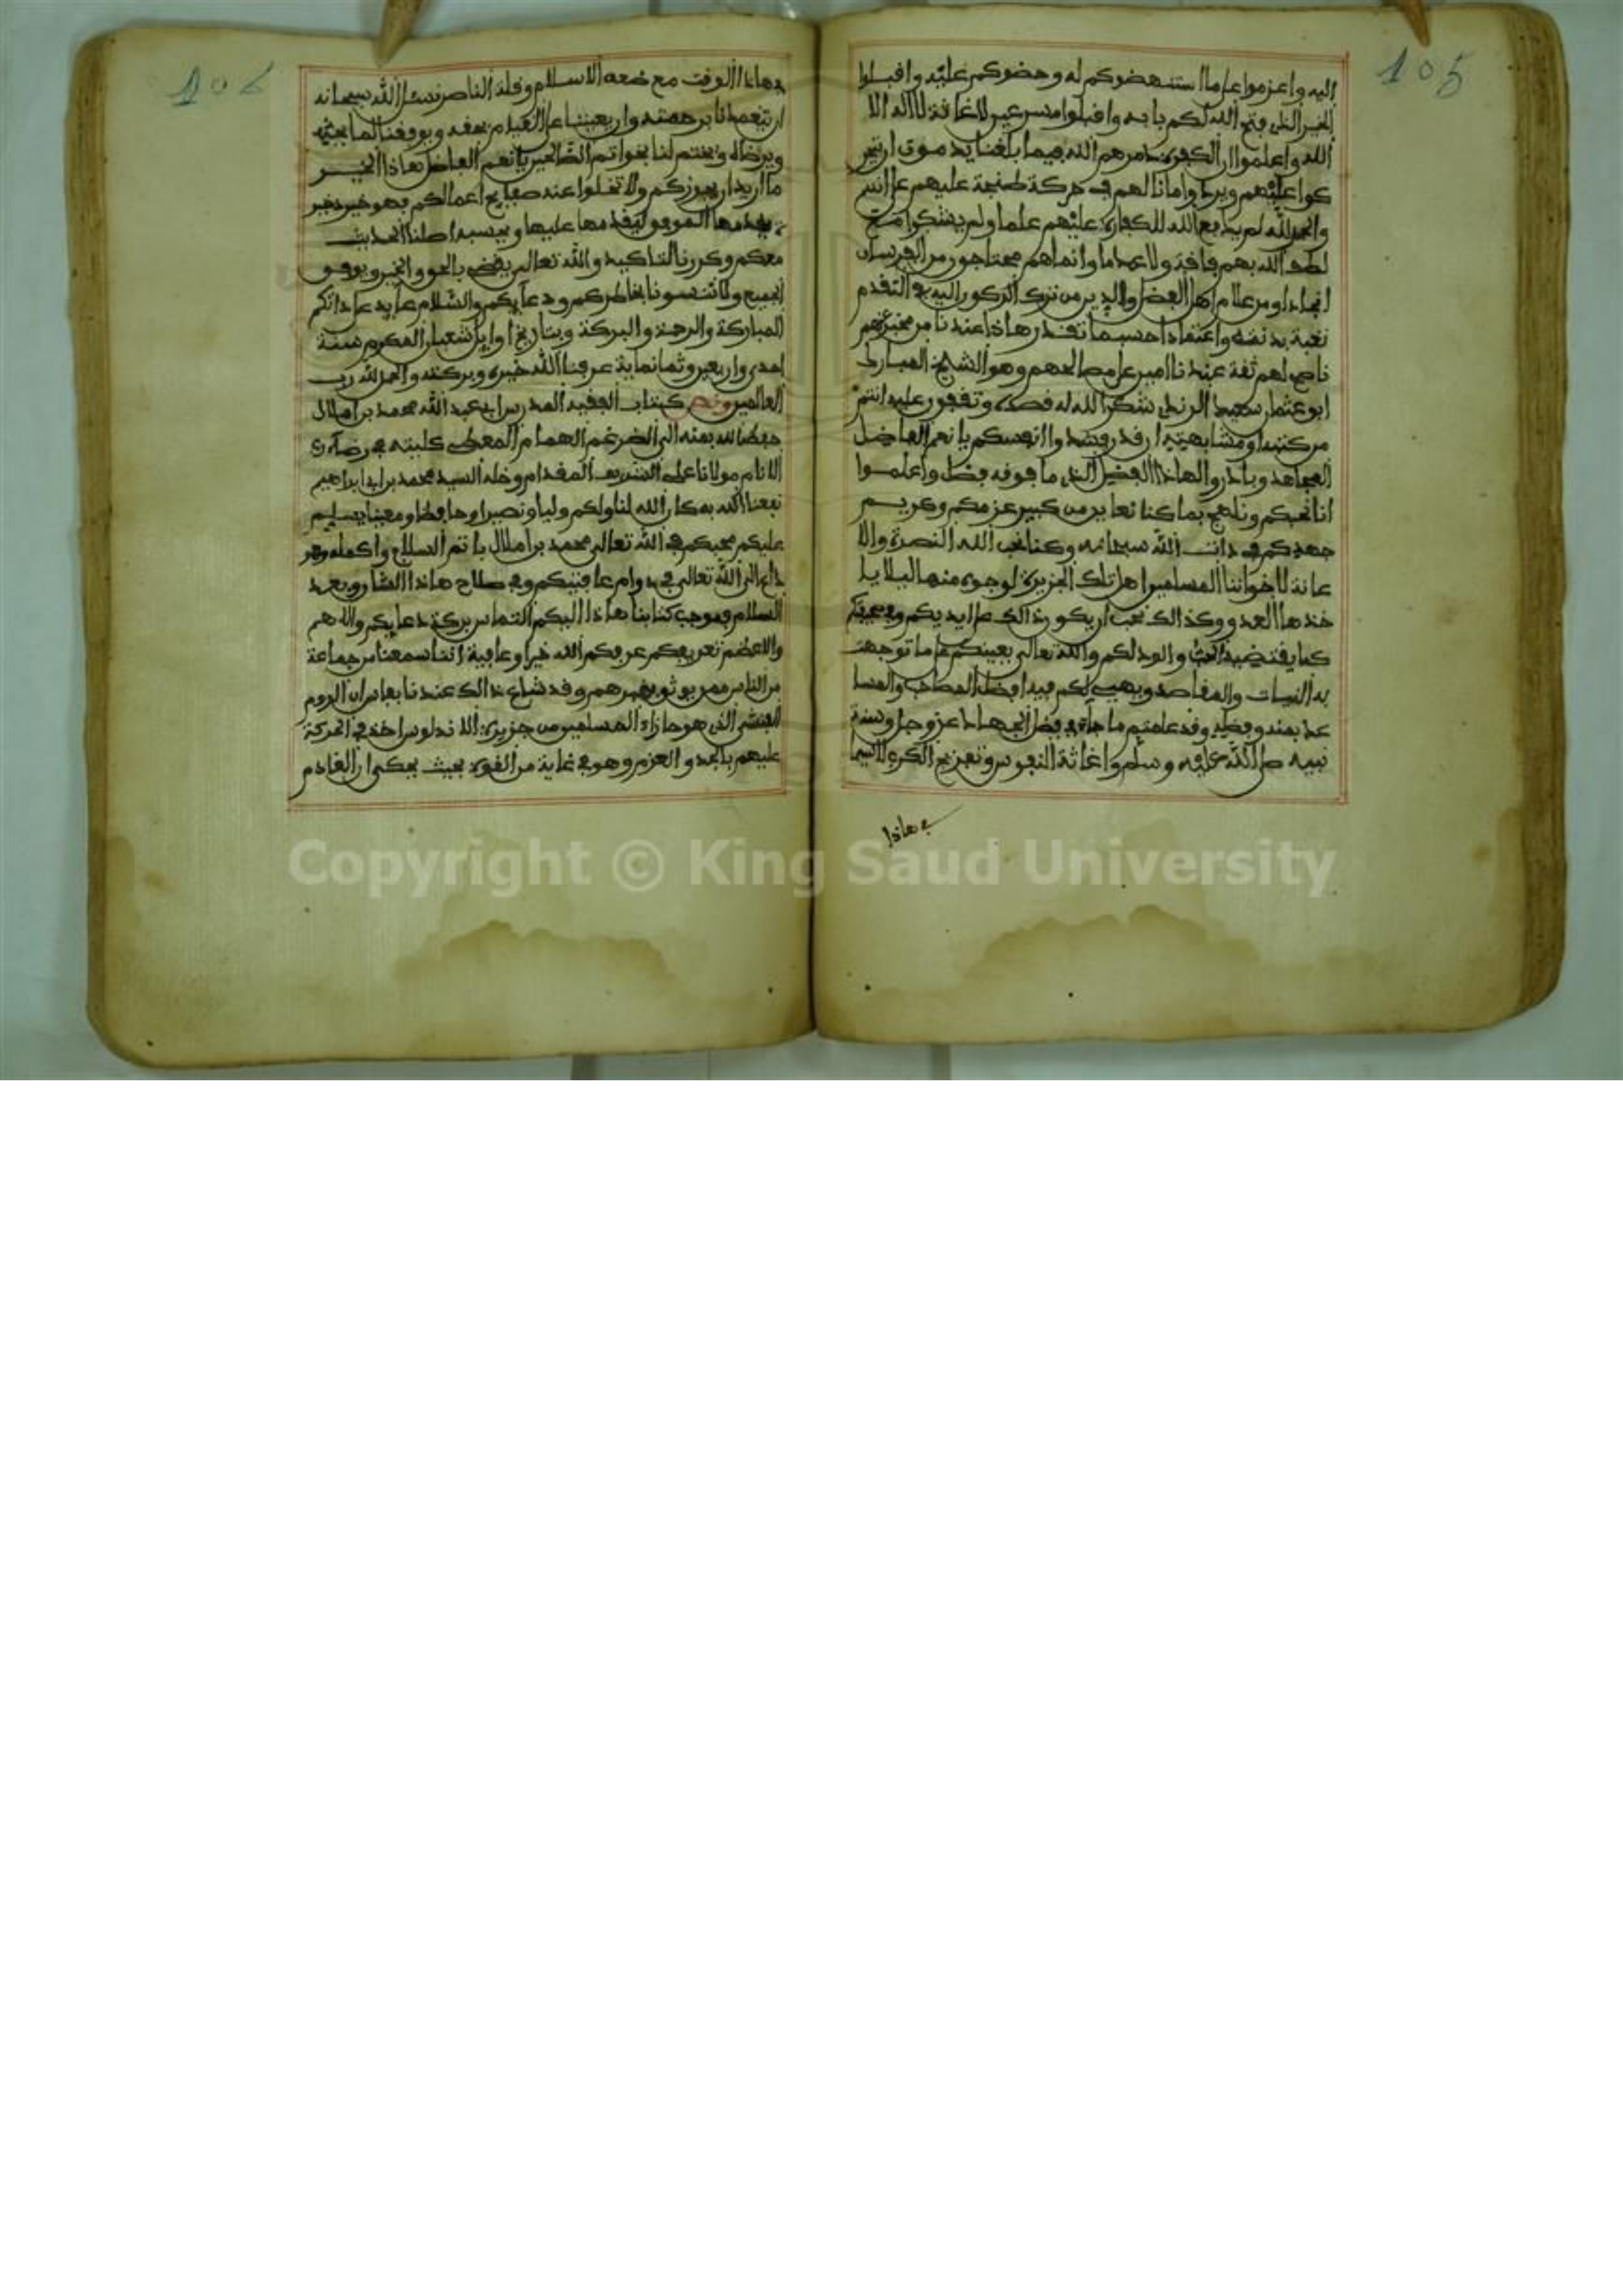 105
اليه واعزموا على ما استنهضوكم له وحضوكم عليه واقبلوا
الخير الذي فتح الله لكم بابه واقبلوا مسرعين لاغاثة لا اله الا
الله واعلموا ان الكفرة دمرهم الله فيما بلغنا
عليهم في حركة طنجة عليهم
والحمد لله لم يدع الله للكفار عليهم علما ولم
لطف الله بهم فاقة ولا وانما هم محتاجون من الفرسان
انجادا ومن علام اهل الفضل والدين من ترك الركون اليه في التقدم
ثقة به واعتمادا حسبما تقدر هاذا عندنا من
ناصح لهم ثقة عندنا امين على مصالحهم وهو الشيخ المبارك
ابو عثمان سعيد الرندي شكر الله له قصده وتقفون عليه انتم
من كتبه ومشابهته ان قدر وشدوا انفسكم يا نعم الفاضل
المجاهد وبادروا لهاذا الفضل الذي ما فوقه فضل واعلموا
انا نحبكم ونلهج بما كنا نعاين من كبير عزمكم وكريم
جهدكم في ذات الله سبحانه وكنا نحب الله النصرة والا
عانة لاخواننا المسلمين اهل تلك الجزيرة لوجوه منها البلايا
خذها العدو وكذالك نحب ان يكون ذالك على ايديكم وفي
كما يقتضيه الحب والود لكم والله تعالى يعينكم على ما توجهت
به النيات والمقاصد ويهيى لكم فيه افضل المطالب والمسا
عد بمنه وفضله وقد علمتم ما جاء في فضل الجهاد عز وجل وسنة
نبيه صلى الله عليه وسلم واغاثة النفوس وتفريج الكرب لا سيما
في هاذا
في هاذا الوقت مع ضعف الاسلام وقلة الناصر نسئل الله سبحانه
ان يتغمدنا برحمته وان يعيننا على القيام بحقه ويوفقنا لما يحبه
ويرضاه ويختم لنا بخواتم الصالحين يا نعم الفاضل هاذا الخير
ما اريد ان يفوزكم ولا تخلوا عنه صفايح اعمالكم فهو خير ذخير
يقدمها الموفق ليقدمها عليها وبحسبه اطلنا الحديث
معكم وكررنا التاكيد والله تعالى يقضي بالحق والخير ويوفق
الجميع ولا تنسونا بخاطركم ودعايكم والسلام عايد على ذاتكم
المباركة والرحمة والبركة وبتاريخ اوايل شعبان المكرم سنة
احدى واربعين وثمانماية عرفنا الله خيره وبركته والحمد لله رب
العالمين ونص كتاب الفقيه المدرس ابي عبد الله محمد بن املال
حفظ الله بمنه الى الضرغم الهمام المعطي كليته في رضاء رب
الانام مولانا على الشريف المقدام وخله السيد محمد بن ابي ابراهيم
نفعنا الله به كان الله لنا ولكم وليا ونصيرا وحافظا ومعينا يسلم
عليكم محبكم في الله تعالى محمد بن املال باتم السلام واكمله وهو
داع الى الله تعالى في دوام عافيتكم وفي صلاح هاذا الشان وبعد
السلام فموجب كتابنا هاذا اليكم التماس بركة دعايكم والاهم
والاعظم تعريفكم عرفكم الله خيرا وعافية اننا سمعنا من جماعة
من الناس ممن يوثق بخبرهم وقد شاع ذالك عندنا بفاس ان الروم
الفنشي الذي هو حازاء المسلمين من جزيرة الاندلوس اخذ في الحركة
عليهم بالجد والعزم وهو في غاية من القوة بحيث يحكى ان القادم